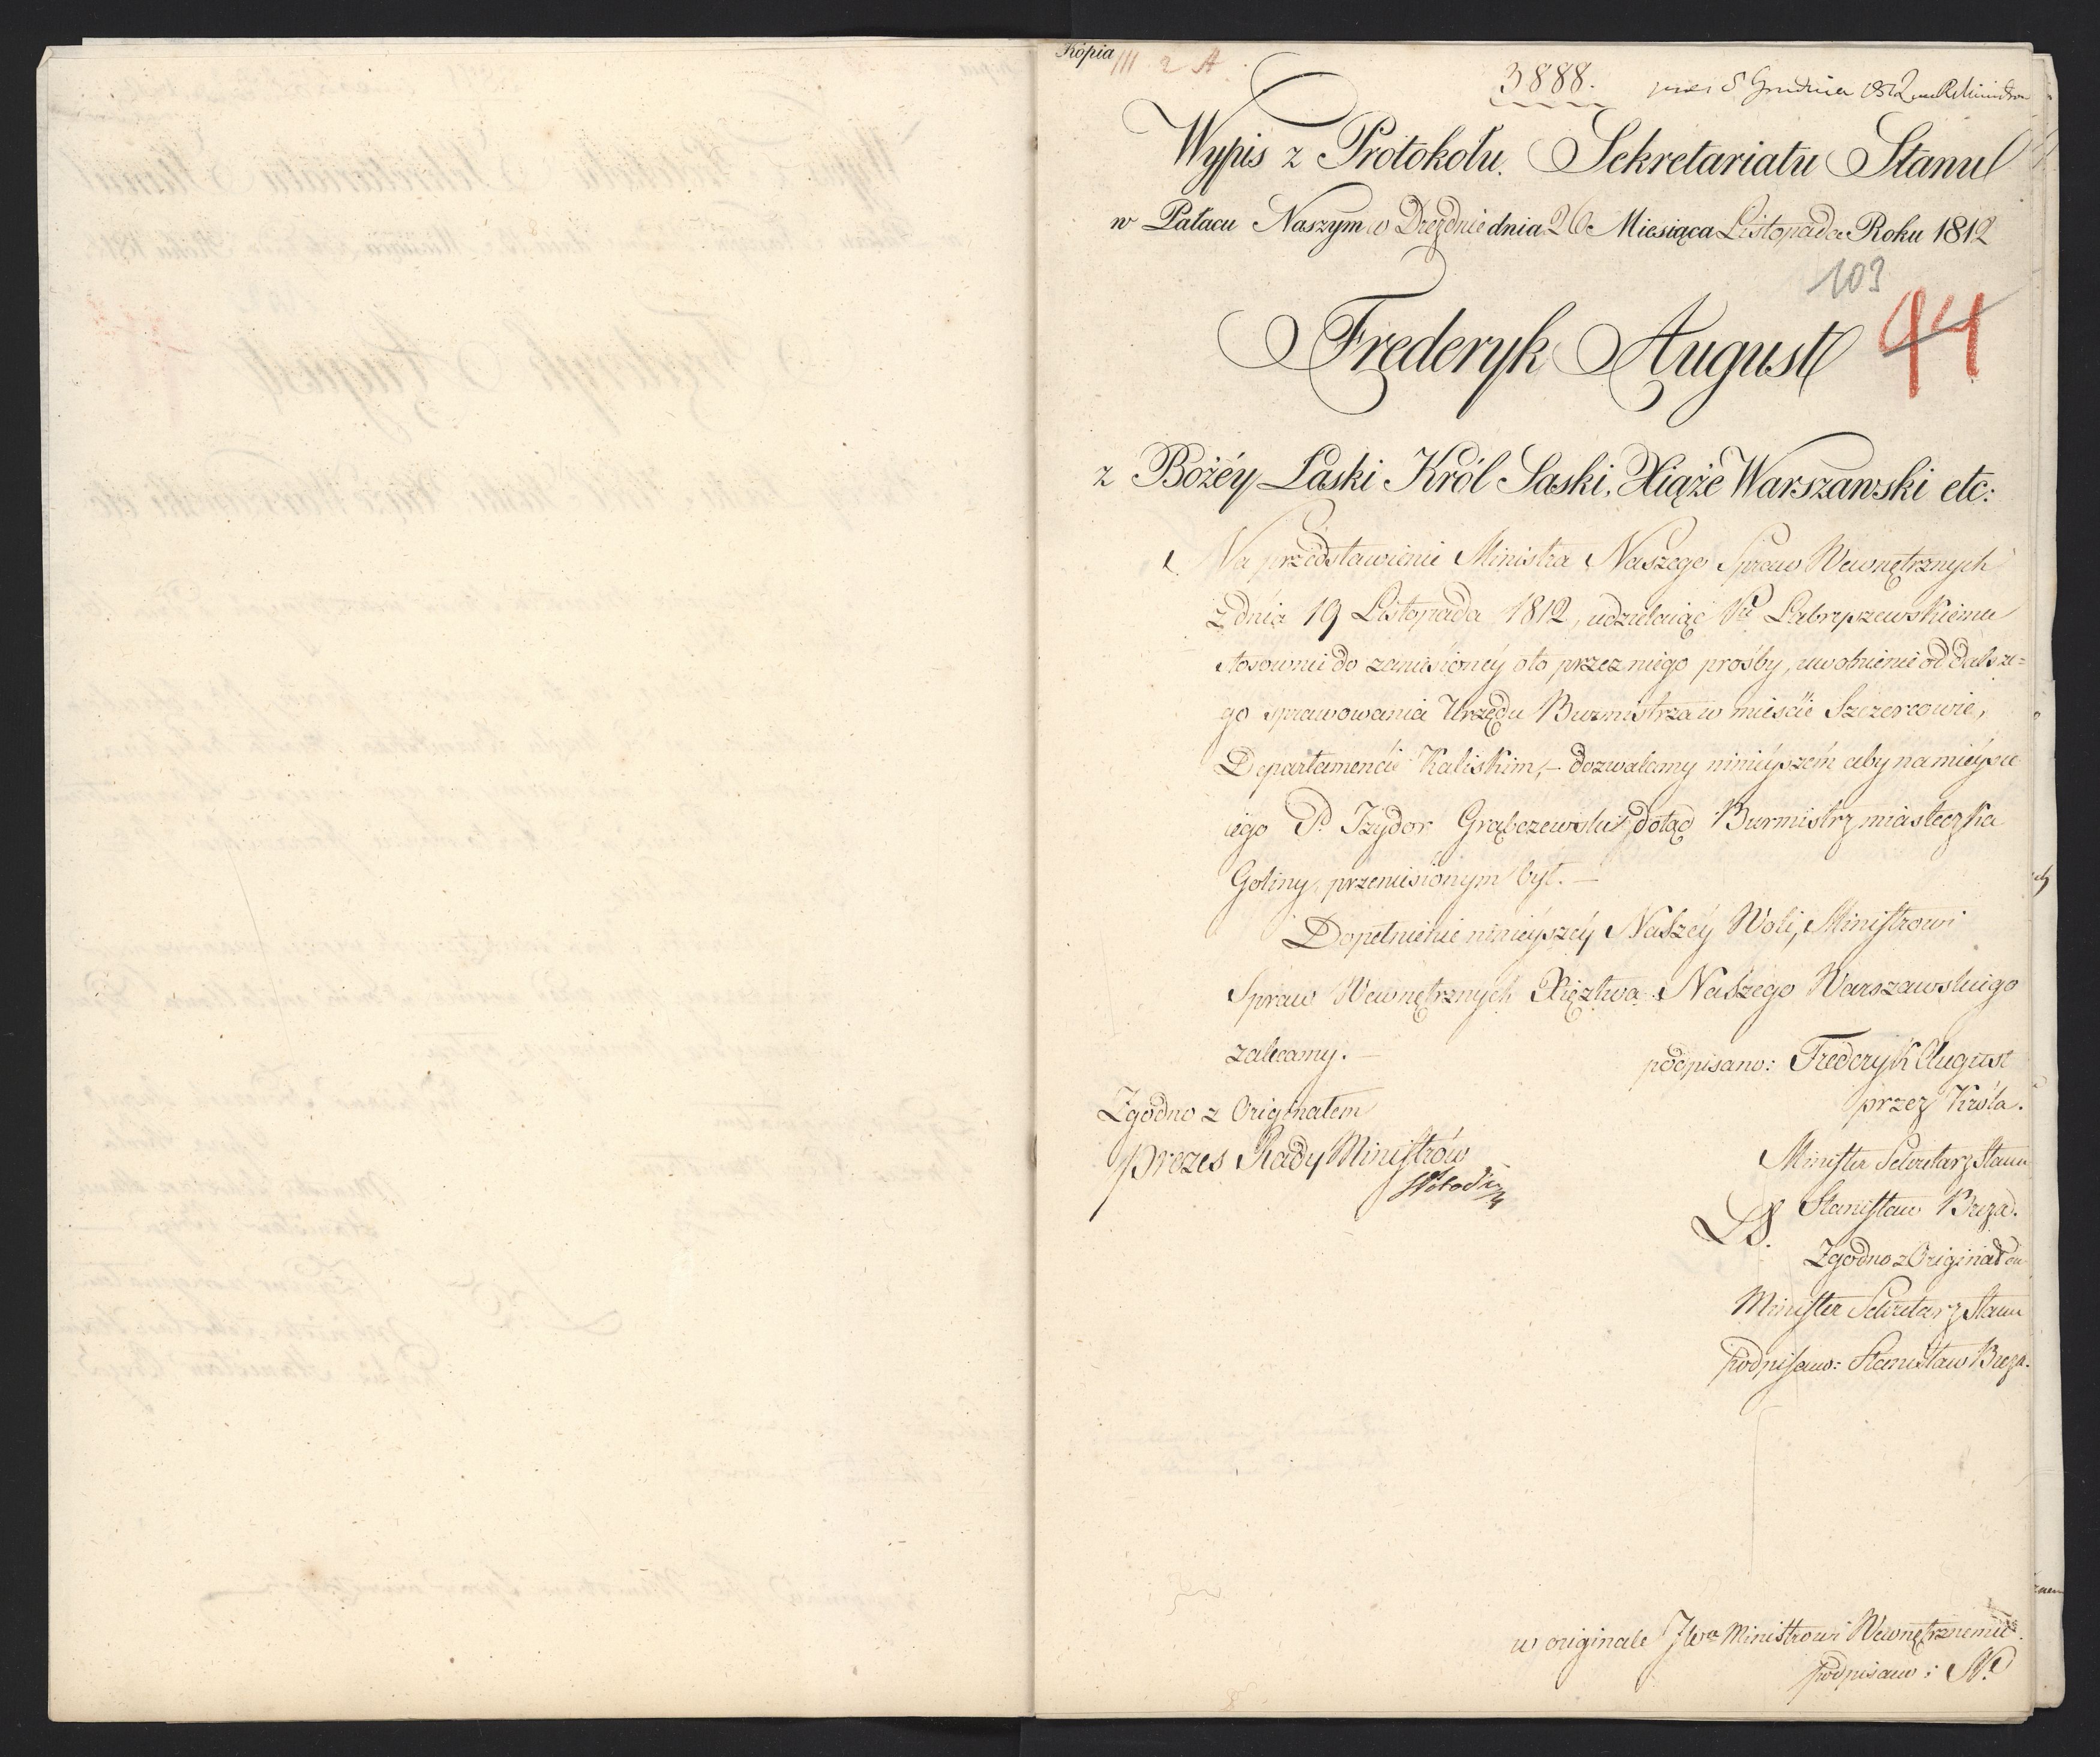 Kopia III 2 A
3888. 5 Grudnia 1812
Wypis z Protokołu Sekretariatu Stanu
w Pałacu Naszym w Dreznie dnia 26 Miesiąca Listopada Roku 1812
103
94
Frederyk August
z Bożéy Łaski Król Saski, Xiąże Warszawski etc:
Na przedstawienie Ministra Naszego Spraw Wewnętrznych
z dnia 19 Listopada 1812, udzielaiąc Pu
stosownie do zaniesionéy oto przez niego prośby, uwolnienie od dalsze=
go sprawowania Urzędu Burmistrza w mieście Szczercowie,
Departamencie Kaliskim, – dozwalamy ninieyszém aby na mieysce
iego P. Izydor Grąbczewski, dotąd Burmistrz miasteczka
Goliny, przeniesionym był. –
Dopełnienie ninieyszéy Naszéy Woli, Ministrowi
Spraw Wewnętrznych Xięztwa Naszego Warszawskiego
zalecamy. –
podpisano: Frederyk August
przez Króla.
Zgodno z Originałem
Prezes Rady Ministrów
Minister Sekretarz Stanu
LS. Stanisław Breza.
Zgodno z Originałem
Minister Sekretarz Stanu
podpisano: Stanisław Breza.
w originale JWu Ministrowi Wewnętrznemu
podpisano: